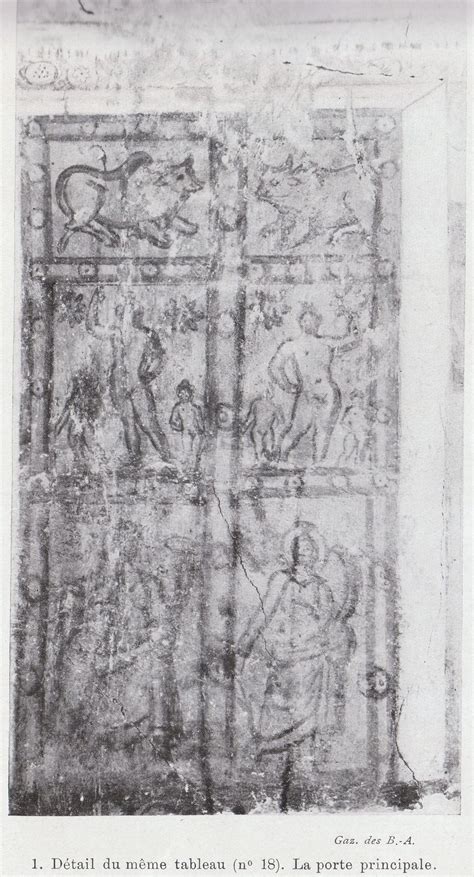 Gaz. des B.-A.
1. Détail du même tableau (nº 18). La porte principale.